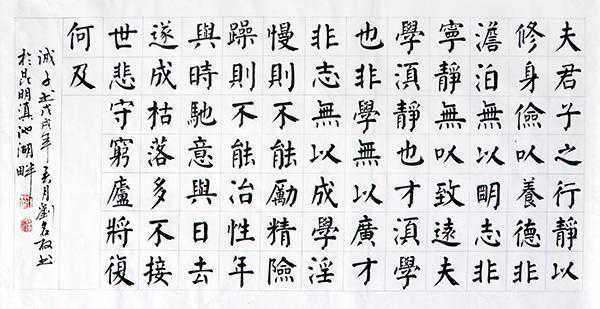 夫君子之行靜以
修身儉以養德非
澹泊無以明志非
寧靜無以致遠夫
學湏靜也才湏學
也非學無以廣才
非志無以成學淫
慢則不能勵精險
躁則不能冶性年
與時馳意與日去
遂成枯落多不接
世悲守窮廬將復
何及
誡子書戊戌年月劉
於昆明滇池湖畔